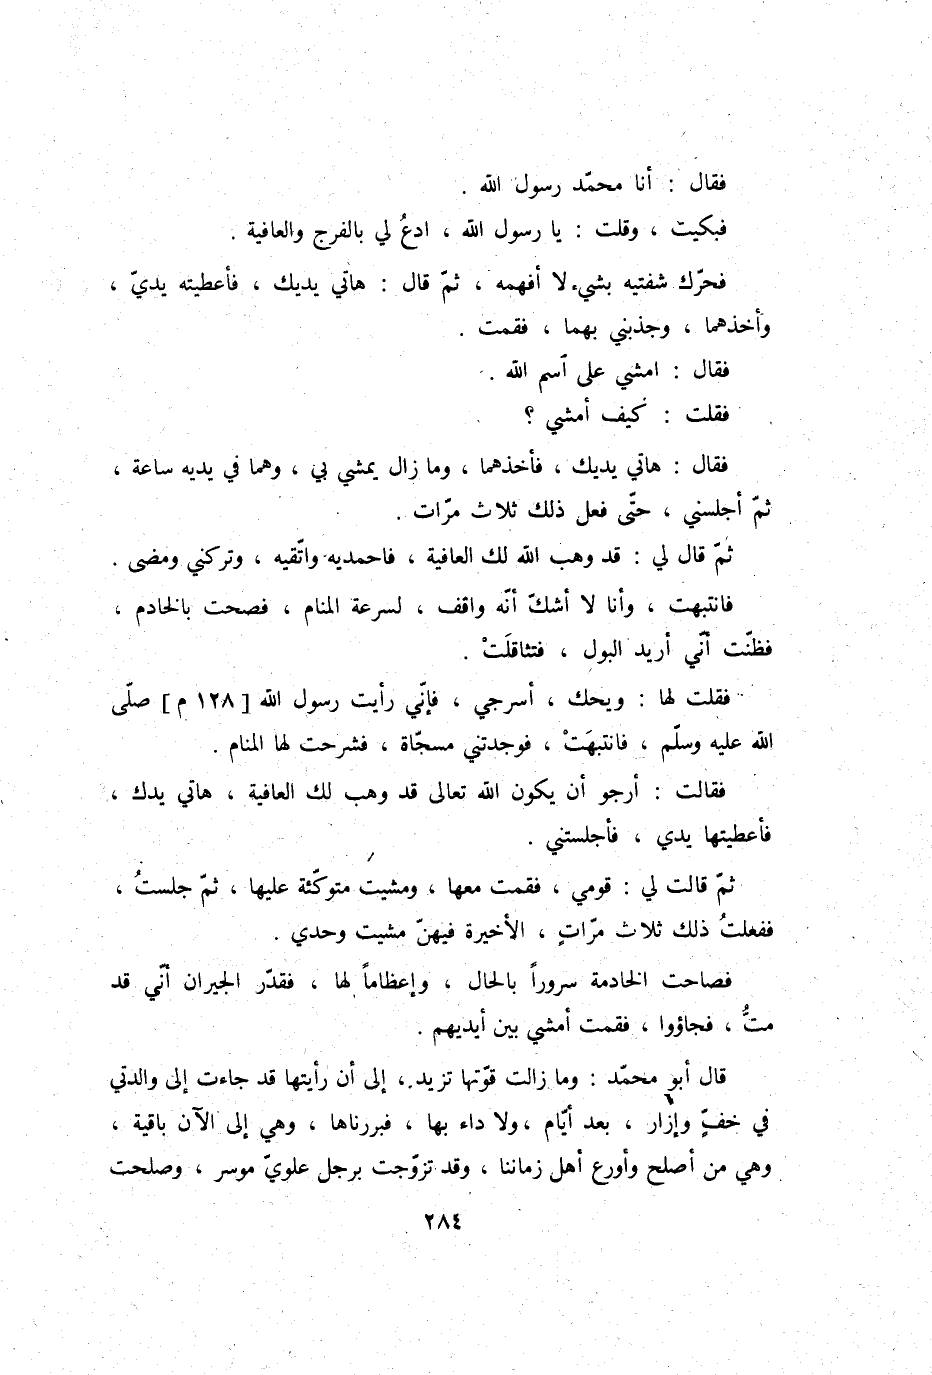 فقال : أنا محمّد رسول اللّه .
فبكيت ، وقلت : يا رسول اللّه ، ادعُ لي بالفرج والعافية .
فحرّك شفتيه بشيء لا أفهمه ، ثمّ قال : هاتي يديك ، فأعطيته يديّ ،
وأخذهما ، وجذبني بهما ، فقمت .
فقال : امشي على آسم اللّه .
فقلت : كيف أمشي ؟
فقال : هاتي يديك ، فأخذهما ، وما زال يمشي بي ، وهما في يديه ساعة ،
ثمّ أجلسني ، حتّى فعل ذلك ثلاث مرّات .
ثمّ قال لي : قد وهب اللّه لك العافية ، فاحمديه واتّقيه ، وتركني ومضى .
فانتبهت ، وأنا لا أشكّ أنّه واقف ، لسرعة المنام ، فصحت بالخادم ،
فظنّت أنّي أريد البول ، فتثاقلَتْ .
فقلت لها : ويحك ، أسرجي ، فإنّي رأيت رسول اللّه [ ١٢٨ م ] صلّى
اللّه عليه وسلّم ، فانتبهَتْ ، فوجدتني مسجّاة ، فشرحت لها المنام .
فقالت : أرجو أن يكون اللّه تعالى قد وهب لك العافية ، هاتي يدك ،
فأعطيتها يدي ، فأجلستني .
ثمّ قالت لي : قومي ، فقمت معها ، ومشيت متوكّئة عليها ، ثمّ جلستُ ،
ففعلتُ ذلك ثلاث مرّاتٍ ، الأخيرة فيهنّ مشيت وحدي .
فصاحت الخادمة سروراً بالحال ، وإعظاماً لها ، فقدّر الجيران أنّي قد
متُّ ، فجاؤوا ، فقمت أمشي بين أيديهم .
قال أبو محمّد : وما زالت قوّتها تزيد ، إلى أن رأيتها قد جاءت إلى والدتي
في خفٍّ وإزار ، بعد أيّام ، ولا داء بها ، فبررناها ، وهي إلى الآن باقية ،
وهي من أصلح وأورع أهل زماننا ، وقد تزوّجت برجل علويّ موسر ، وصلحت
٢٨٤